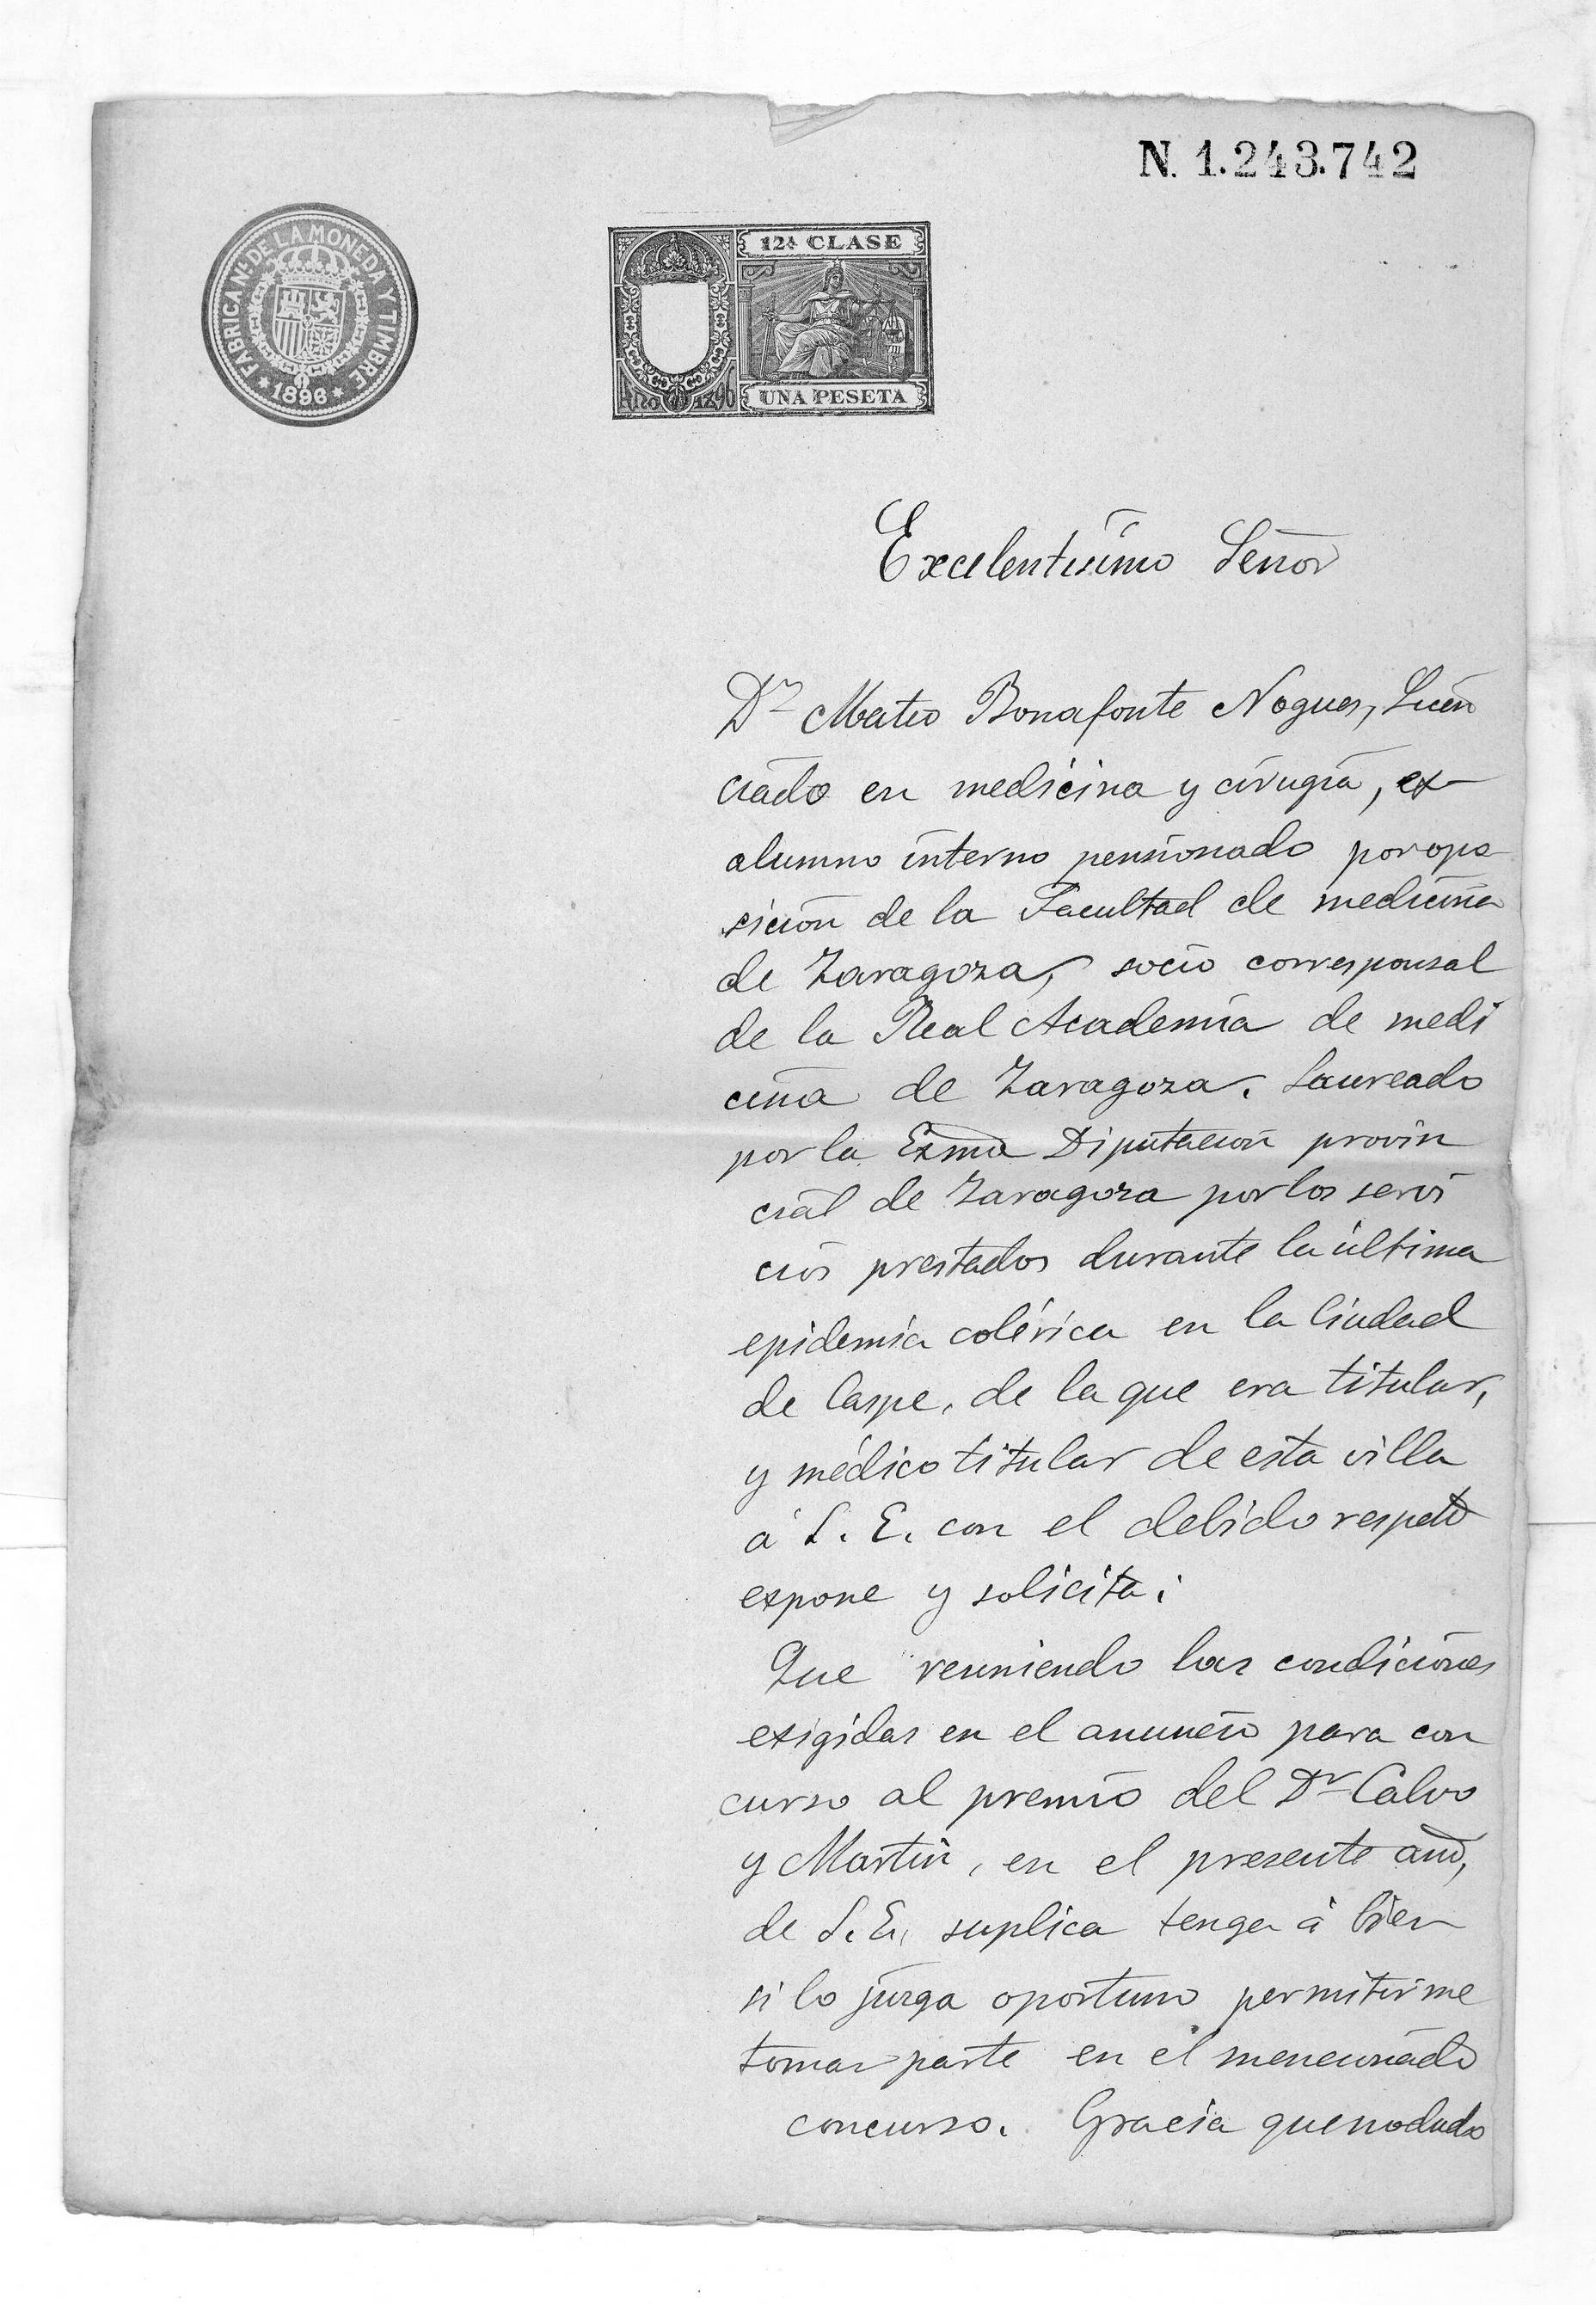 N. 1.243.742
FABRICA NL. DE LA MONEDA Y TIMBRE
* 1896 *
12ª CLASE
Año 1896
UNA PESETA
Excelentisimo Señor
Dn Mateo Bonafonte Nogues, Licen
ciado en medicina y cirugia, ex
alumno interno pensionado por opo
sición de la Facultad de medicina
de Zaragoza, socio corresponsal
de la Real Academia de medi
cina de Zaragoza. Laureado
por la Exma Diputacion provin
cial de Zaragoza por los servi
cios prestados durante la última
epidemia colérica en la Ciudad
de Caspe, de la que era titular,
y médico titular de esta villa
á S. E. con el debido respeto
expone y solicita:
Que reuniendo las condiciones
exigidas en el anuncio para con
curso al premio del Dr Calvo
y Martin, en el presente año,
de S. E. suplica tenga á bien
si lo juzga oportuno permitirme
tomar parte en el mencionado
concurso. Gracia que no dudo